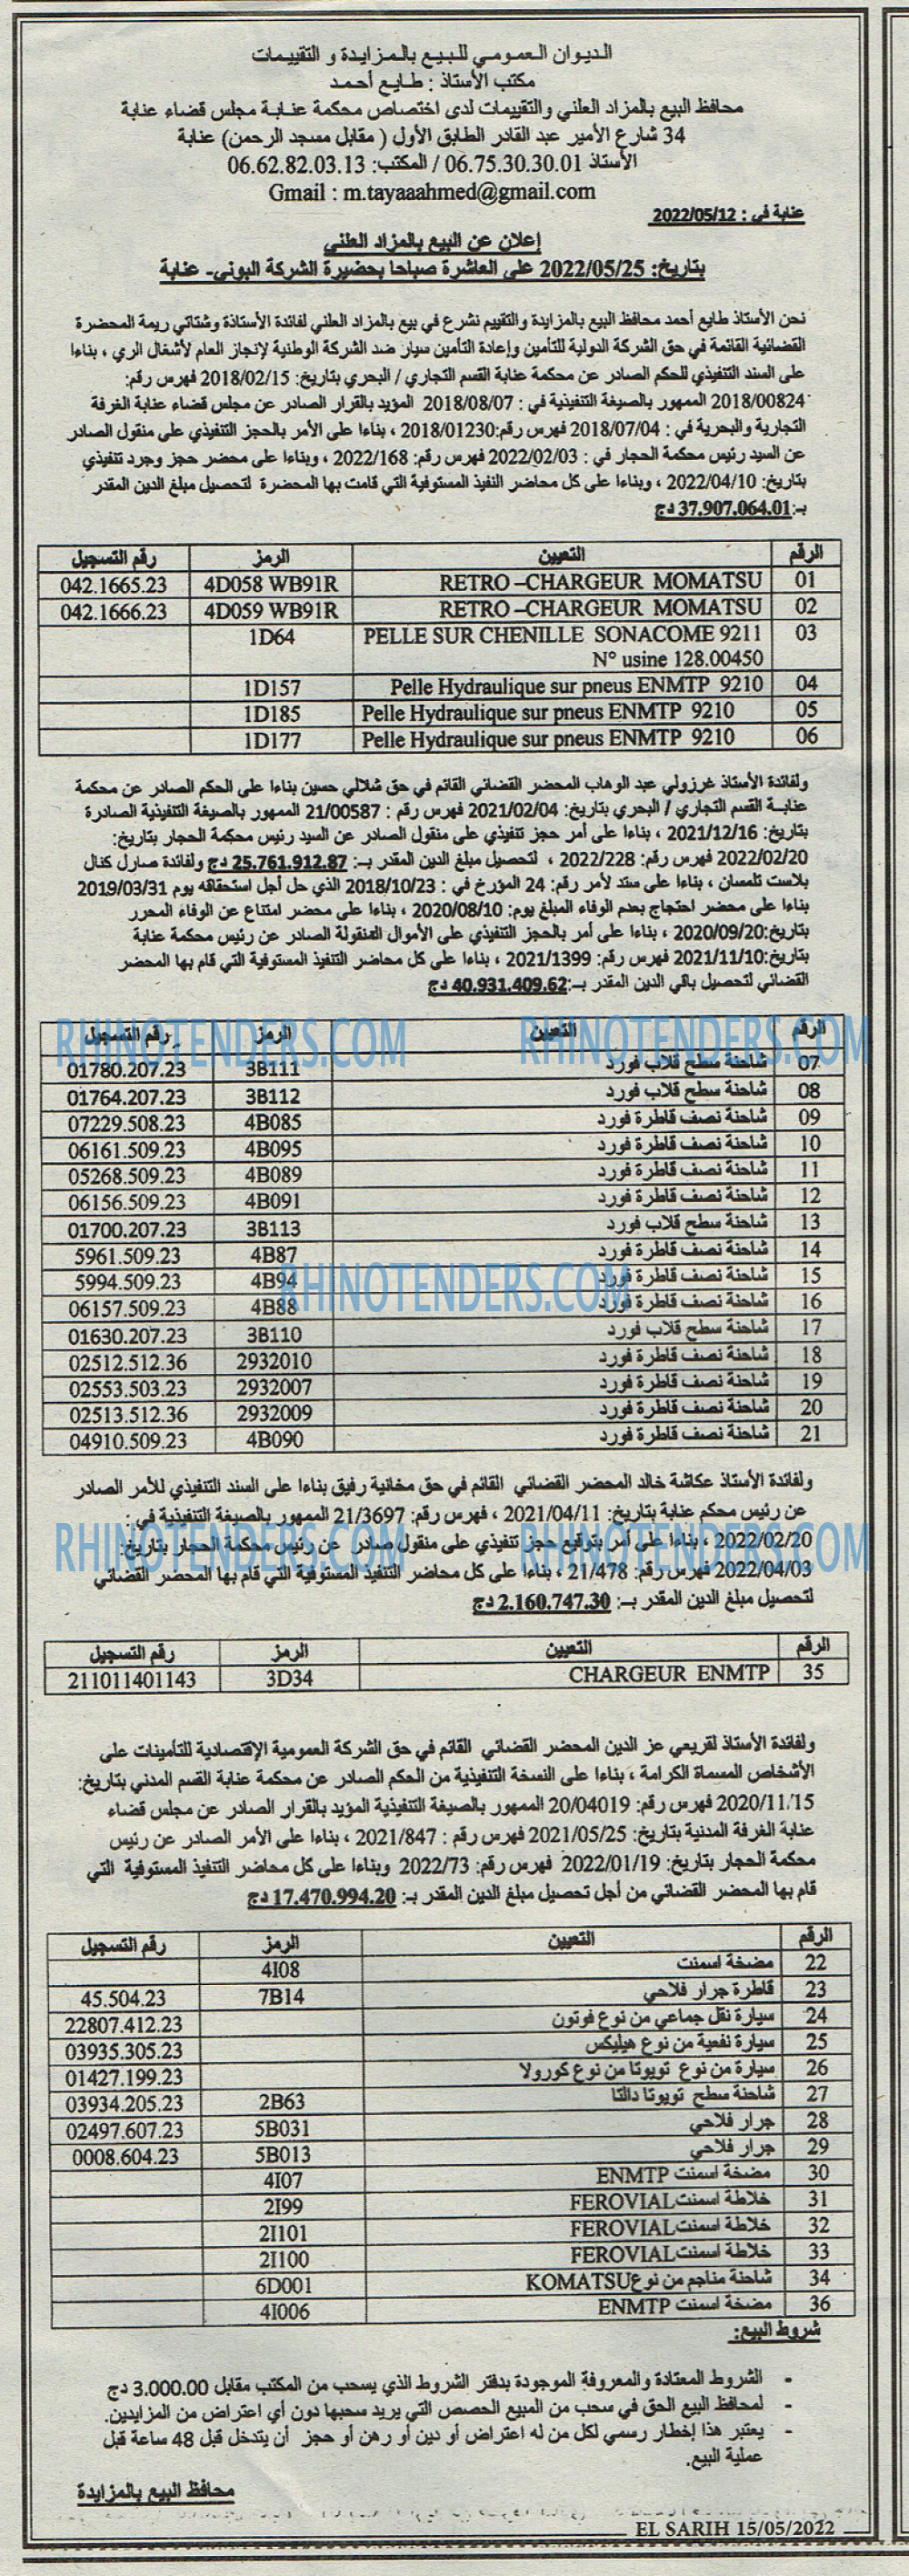 الديوان العمومي للبيع بالمزايدة و التقييمات
مكتب الأستاذ : طايع أحمد
محافظ البيع بالمزاد العلني والتقييمات لدى اختصاص محكمة عنابة مجلس قضاء عنابة
34 شارع الأمير عبد القادر الطابق الأول ( مقابل مسجد الرحمن) عنابة
الأستاذ 06.75.30.30.01 / المكتب: 06.62.82.03.13
Gmail : m.tayaaahmed@gmail.com
عنابة في : 2022/05/12
إعلان عن البيع بالمزاد العلني
بتاريخ: 2022/05/25 على العاشرة صباحا بحضيرة الشركة البوني- عنابة
نحن الأستاذ طايع أحمد محافظ البيع بالمزايدة والتقييم نشرع في بيع بالمزاد العلني لفائدة الأستاذة وشتاتي ريمة المحضرة
القضائية القائمة في حق الشركة الدولية للتأمين وإعادة التأمين سيار ضد الشركة الوطنية لإنجاز العام لأشغال الري ، بناءا
على السند التنفيذي للحكم الصادر عن محكمة عنابة القسم التجاري / البحري بتاريخ: 2018/02/15 فهرس رقم:
2018/00824 الممهور بالصيغة التنفيذية في : 2018/08/07 المؤيد بالقرار الصادر عن مجلس قضاء عنابة الغرفة
التجارية والبحرية في : 2018/07/04 فهرس رقم:2018/01230 ، بناءا على الأمر بالحجز التنفيذي على منقول الصادر
عن السيد رئيس محكمة الحجار في : 2022/02/03 فهرس رقم: 2022/168 ، وبناءا على محضر حجز وجرد تنفيذي
بتاريخ: 2022/04/10 ، وبناءا على كل محاضر النفيذ المستوفية التي قامت بها المحضرة لتحصيل مبلغ الدين المقدر
بـ:37.907.064.01 دج
الرقم التعيين الرمز رقم التسجيل
01 RETRO –CHARGEUR MOMATSU 4D058 WB91R 042.1665.23
02 RETRO –CHARGEUR MOMATSU 4D059 WB91R 042.1666.23
03 PELLE SUR CHENILLE SONACOME 9211 1D64
N° usine 128.00450
04 Pelle Hydraulique sur pneus ENMTP 9210 1D157
05 Pelle Hydraulique sur pneus ENMTP 9210 1D185
06 Pelle Hydraulique sur pneus ENMTP 9210 1D177
ولفائدة الأستاذ غرزولي عبد الوهاب المحضر القضائي القائم في حق شلالي حسين بناءا على الحكم الصادر عن محكمة
عنابة القسم التجاري / البحري بتاريخ: 2021/02/04 فهرس رقم : 21/00587 الممهور بالصيغة التنفيذية الصادرة
بتاريخ: 2021/12/16 ، بناءا على أمر حجز تنفيذي على منقول الصادر عن السيد رئيس محكمة الحجار بتاريخ:
2022/02/20 فهرس رقم: 2022/228 ، لتحصيل مبلغ الدين المقدر بـ: 25.761.912.87 دج ولفائدة صارل كنال
بلاست تلمسان ، بناءا على سند لأمر رقم: 24 المؤرخ في : 2018/10/23 الذي حل أجل استحقاقه يوم 2019/03/31
بناءا على محضر احتجاج بعدم الوفاء المبلغ يوم: 2020/08/10 ، بناءا على محضر امتناع عن الوفاء المحرر
بتاريخ:2020/09/20 ، بناءا على أمر بالحجز التنفيذي على الأموال المنقولة الصادر عن رئيس محكمة عنابة
بتاريخ:2021/11/10 فهرس رقم: 2021/1399 ، بناءا على كل محاضر التنفيذ المستوفية التي قام بها المحضر
القضائي لتحصيل باقي الدين المقدر بـ:40.931.409.62 دج
RHINOTENDERS.COM RHINOTENDERS.COM
الرقم التعيين الرمز رقم التسجيل
07 شاحنة سطح قلاب فورد 3B111 01780.207.23
08 شاحنة سطح قلاب فورد 3B112 01764.207.23
09 شاحنة نصف قاطرة فورد 4B085 07229.508.23
10 شاحنة نصف قاطرة فورد 4B095 06161.509.23
11 شاحنة نصف قاطرة فورد 4B089 05268.509.23
12 شاحنة نصف قاطرة فورد 4B091 06156.509.23
13 شاحنة سطح قلاب فورد 3B113 01700.207.23
14 شاحنة نصف قاطرة فورد 4B87 5961.509.23
15 شاحنة نصف قاطرة فورد 4B94 5994.509.23
RHINOTENDERS.COM
16 شاحنة نصف قاطرة فورد 4B88 06157.509.23
17 شاحنة سطح قلاب فورد 3B110 01630.207.23
18 شاحنة نصف قاطرة فورد 2932010 02512.512.36
19 شاحنة نصف قاطرة فورد 2932007 02553.503.23
20 شاحنة نصف قاطرة فورد 2932009 02513.512.36
21 شاحنة نصف قاطرة فورد 4B090 04910.509.23
ولفائدة الأستاذ عكاشة خالد المحضر القضائي القائم في حق مخانية رفيق بناءا على السند التنفيذي للأمر الصادر
عن رئيس محكم عنابة بتاريخ: 2021/04/11 ، فهرس رقم: 21/3697 الممهور بالصيغة التنفيذية في :
RHINOTENDERS.COM RHINOTENDERS.COM
2022/02/20 ، بناءا على أمر بتوقيع حجز تنفيذي على منقول صادر عن رئيس محكمة الحجار بتاريخ:
2022/04/03 فهرس رقم: 21/478 ، بناءا على كل محاضر التنفيذ المستوفية التي قام بها المحضر القضائي
لتحصيل مبلغ الدين المقدر بـ: 2.160.747.30 دج
الرقم التعيين الرمز رقم التسجيل
35 CHARGEUR ENMTP 3D34 211011401143
ولفائدة الأستاذ لقريعي عز الدين المحضر القضائي القائم في حق الشركة العمومية الإقتصادية للتأمينات على
الأشخاص المسماة الكرامة ، بناءا على النسخة التنفيذية من الحكم الصادر عن محكمة عنابة القسم المدني بتاريخ:
2020/11/15 فهرس رقم: 20/04019 الممهور بالصيغة التنفيذية المؤيد بالقرار الصادر عن مجلس قضاء
عنابة الغرفة المدنية بتاريخ: 2021/05/25 فهرس رقم : 2021/847 ، بناءا على الأمر الصادر عن رئيس
محكمة الحجار بتاريخ: 2022/01/19 فهرس رقم: 2022/73 وبناءا على كل محاضر التنفيذ المستوفية التي
قام بها المحضر القضائي من أجل تحصيل مبلغ الدين المقدر بـ: 17.470.994.20 دج
الرقم التعيين الرمز رقم التسجيل
22 مضخة اسمنت 4I08
23 قاطرة جرار فلاحي 7B14 45.504.23
24 سيارة نقل جماعي من نوع فوتون 22807.412.23
25 سيارة نفعية من نوع هيليكس 03935.305.23
26 سيارة من نوع تويوتا من نوع كورولا 01427.199.23
27 شاحنة سطح تويوتا دالتا 2B63 03934.205.23
28 جرار فلاحي 5B031 02497.607.23
29 جرار فلاحي 5B013 0008.604.23
30 مضخة اسمنت ENMTP 4I07
31 خلاطة اسمنت FEROVIAL 2I99
32 خلاطة اسمنت FEROVIAL 2I101
33 خلاطة اسمنت FEROVIAL 2I100
34 شاحنة مناجم من نوع KOMATSU 6D001
36 مضخة اسمنت ENMTP 4I006
شروط البيع:
- الشروط المعتادة والمعروفة الموجودة بدفتر الشروط الذي يسحب من المكتب مقابل 3.000.00 دج
- لمحافظ البيع الحق في سحب من المبيع الحصص التي يريد سحبها دون أي اعتراض من المزايدين.
- يعتبر هذا إخطار رسمي لكل من له اعتراض أو دين أو رهن أو حجز أن يتدخل قبل 48 ساعة قبل
عملية البيع.
محافظ البيع بالمزايدة
EL SARIH 15/05/2022